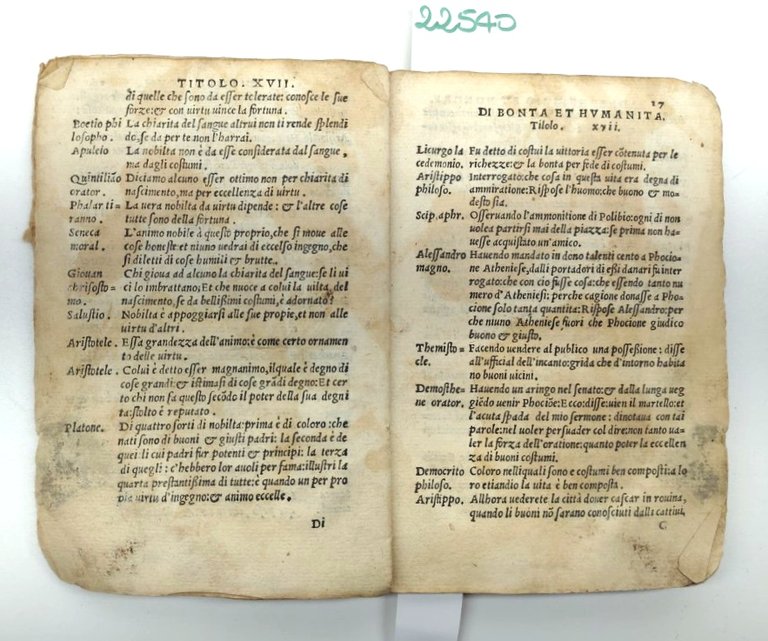 22540
TITOLO. XVII.
di quelle che sono da esser tolerate: conosce le sue
forze: & con uirtu uince la fortuna.
Boetio phi La chiarita del sangue altrui non ti rende splendi
losopho. do, se da per te non l'harrai.
Apulcio La nobilta non è da esse considerata dal sangue,
ma dagli costumi.
Quintiliāo Diciamo alcuno esser ottimo non per chiarita di
orator. nascimento, ma per eccellenza di uirtu.
Phalarti= La uera nobilta da uirtu dipende: & l'altre cose
ranno. tutte sono della fortuna.
Seneca L'animo nobile à questo proprio, che si moue alle
moral. cose honeste: et niuno uedrai di eccelso ingegno, che
si diletti di cose humili & brutte.
Giouan Chi gioua ad alcuno la chiarita del sangue: se li ui
chrisosto= ci lo imbrattano, Et che nuoce a colui la uilta, del
mo. nascimento, se da bellissimi costumi, è adornato?
Salustio. Nobilta è appoggiarsi alle sue propie, et non alle
uirtu d'altri.
Aristotele. Essa grandezza dell'animo: è come certo ornamen
to delle uirtu.
Aristotele. Colui è detto esser magnanimo, ilquale è degno di
cose grandi: & istimasi de cose grādi degno: Et cer
to chi non fa questo secōdo il poter della sua degni
ta: stolto è reputato.
Platone. Di quattro sorti di nobilta: prima è di coloro: che
nati sono di buoni & giusti padri: la seconda è de
quei: li cui padri fur potenti & principi: la terza
di quegli: c'hebbero lor auoli per fama: illustri la
quarta prestantissima di tutte: è quando un per pro
pia uirtu d'ingegno: & animo eccelle.
Di
17
DI BONTA ET HVMANITA.
Titolo. xvii.
Licurgo la Fu detto di costui la uittoria esser cōtenuta per le
cedemonio. richezze: & la bonta per fede di costumi.
Aristippo Interrogato: che cosa in questa uita era degna di
philoso. ammiratione: Rispose l'huomo: che buono & mo=
desto sia.
Scip. aphr. Osseruando l'ammonitione di Polibio: ogni di non
uolea partirsi mai della piazza: se prima non ha=
uesse acquistato un'amico.
Alessandro Hauendo mandato in dono talenti cento a Phocio=
magno. ne Atheniese, dalli portadori di essi danari fu inter
rogato: che con cio fusse cosa: che essendo tanto nu
mero d'Atheniesi: perche cagione donasse a Pho=
cione solo tanta quantita: Rispose Alessandro: per
che niuno Atheniese fuori che Phocione giudico
buono & giusto.
Themisto= Facendo uendere al publico una possessione: disse
cle. all'ufficial dell'incanto: grida che d'intorno habita
no buoni uicini.
Demosthe= Hauendo un aringo nel senato: & dalla lunga ueg
ne orator. giēdo uenir Phociōe: Ecco: disse: uien il martello: et
l'acuta spada del mio sermone: dinotaua con tai
parole: nel uoler persuader col dire: non tanto ua=
ler la forza dell'oratione: quanto poter la eccellen
za di buoni costumi.
Democrito Coloro nelliquali sono e costumi ben composti: a lo
philoso. ro etiandio la uita è ben composta.
Aristippo. Allhora uederete la città douer cascar in rouina,
quando li buoni nō sarano conosciuti dalli cattiui.
C